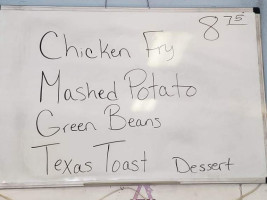 8 75
Chicken Fry
Mashed Potato
Green Beans
Texas Toast Dessert